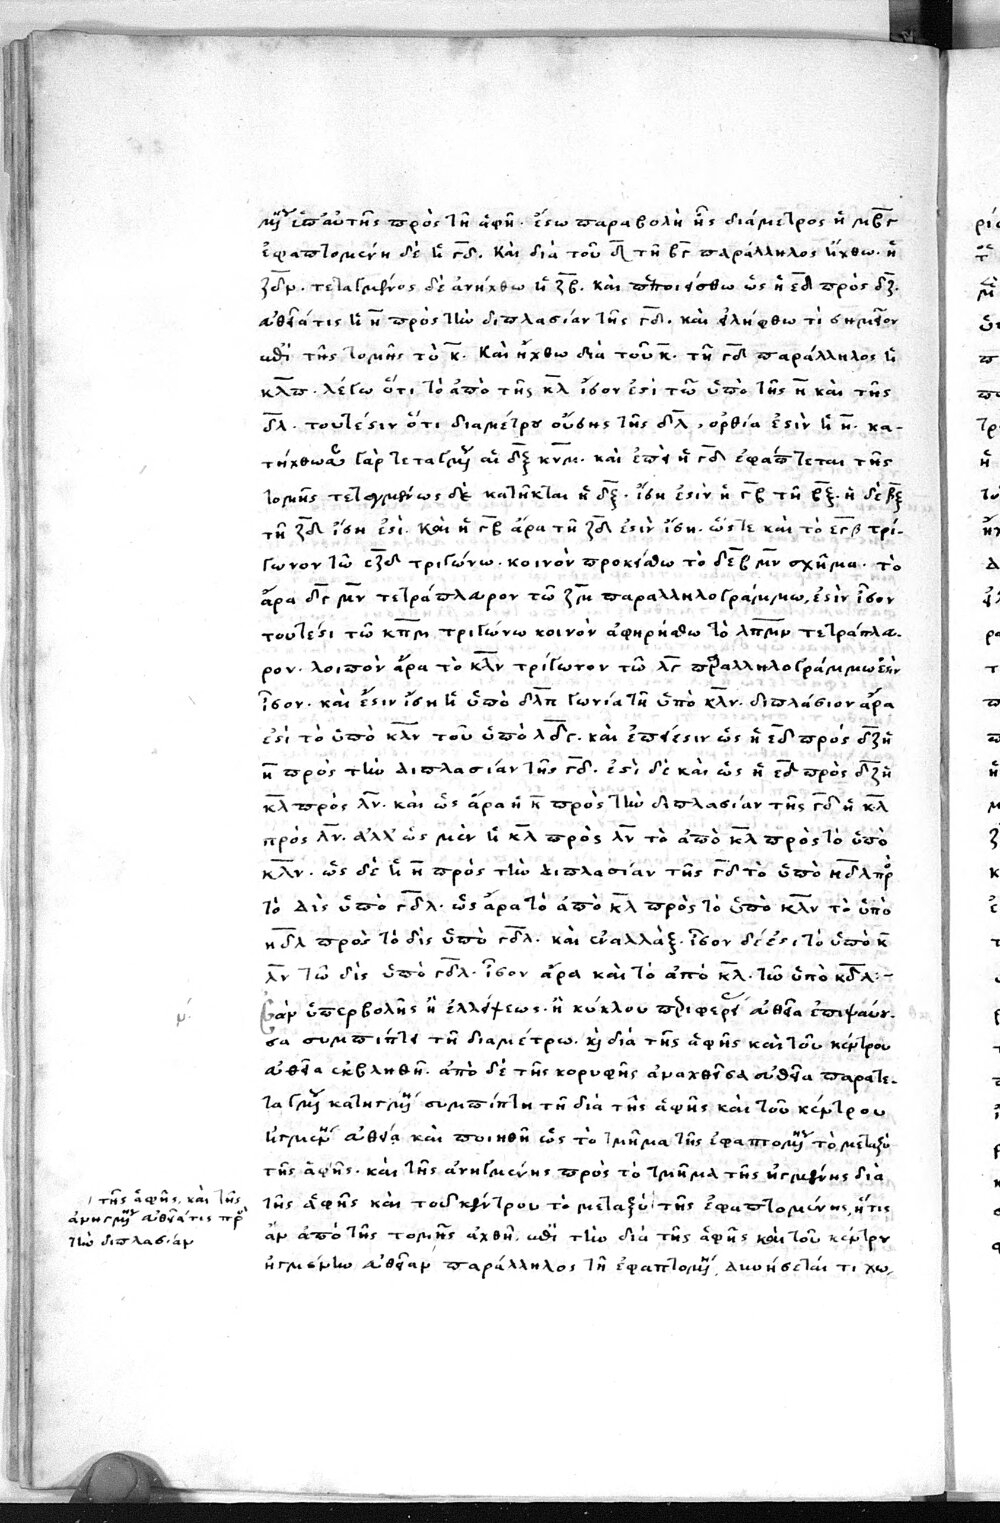 μένης ἐπ' αὐτῆς πρὸς τῇ ἁφῇ. ἔστω παραβολὴ ἧς διάμετρος ἡ μβγ
ἐφαπτομένη δὲ ἡ γδ. καὶ διὰ τοῦ δ τῇ βγ παράλληλος ἤχθω. ἡ
ζδν. τεταγμένως δὲ ἀνήχθω ἡ ζβ. καὶ πεποιήσθω ὡς ἡ εδ πρὸς δζ.
εὐθεῖά τις ἡ η πρὸς τὴν διπλασίαν τῆς γδ. καὶ εἰλήφθω τι σημεῖον
ἐπὶ τῆς τομῆς τὸ κ. καὶ ἤχθω διὰ τοῦ κ. τῇ γδ παράλληλος ἡ
κλπ. λέγω ὅτι τὸ ἀπὸ τῆς κλ ἴσον ἐστὶ τῶ ὑπὸ τῆς η καὶ τῆς
δλ. τουτέστιν ὅτι διαμέτρου οὔσης τῆς δλ, ὀρθία ἐστὶν ἡ η. κα-
τήχθωσαν γὰρ τεταγμένως αἱ δξ κνμ. καὶ ἐπεὶ ἡ γδ ἐφάπτεται τῆς
τομῆς τεταγμένως δὲ κατῆκται ἡ δξ. ἴση ἐστὶν ἡ γβ τῇ βξ. ἡ δὲ βξ
τῇ ζδ ἴση ἐστί. καὶ ἡ γβ ἄρα τῇ ζδ ἐστὶν ἴση. ὥστε καὶ τὸ εγβ τρί-
γωνον τῶ εζδ τριγώνω. κοινὸν προσκείσθω τὸ δεβμν σχῆμα. τὸ
ἄρα δγμν τετράπλευρον τῶ ζμ παραλληλογράμμω, ἐστὶν ἴσον
τουτέστι τῶ κπμ τριγώνω κοινὸν ἀφηρήσθω τὸ λπμν τετράπλευ-
ρον. λοιπὸν ἄρα τὸ κλν τρίγωνον τῶ λγ παραλληλογράμμω ἐστὶν
ἴσον. καὶ ἔστιν ἴση ἡ ὑπὸ δλπ γωνία τῇ ὑπὸ κλν. διπλάσιον ἄρα
ἐστὶ τὸ ὑπὸ κλν τοῦ ὑπὸ λδγ. καὶ ἐπεί ἐστιν ὡς ἡ εδ πρὸς δζ ἡ
η πρὸς τὴν διπλασίαν τῆς γδ. ἐστὶ δὲ καὶ ὡς ἡ εδ πρὸς δζ ἡ
κλ πρὸς λν. καὶ ὡς ἄρα ἡ η πρὸς τὴν διπλασίαν τῆς γδ ἡ κλ
πρὸς λν. ἀλλ' ὡς μὲν ἡ κλ πρὸς λν τὸ ἀπὸ κλ πρὸς τὸ ὑπὸ
κλν. ὡς δὲ ἡ η πρὸς τὴν διπλασίαν τῆς γδ τὸ ὑπὸ ηδλ πρὸς
τὸ δὶς ὑπὸ γδλ. ὡς ἄρα τὸ ἀπὸ κλ πρὸς τὸ ὑπὸ κλν τὸ ὑπὸ
ηδλ πρὸς τὸ δὶς ὑπὸ γδλ. καὶ ἐναλλάξ. ἴσον δέ ἐστι τὸ ὑπὸ κ
λν τῶ δὶς ὑπὸ γδλ. ἴσον ἄρα καὶ τὸ ἀπὸ κλ. τῶ ὑπὸ κδλ:-
μ. Ἐὰν ὑπερβολῆς ἢ ἐλλείψεως. ἢ κύκλου περιφερείας εὐθεῖα ἐπιψαύου-
σα συμπίπτῃ τῇ διαμέτρω. καὶ διὰ τῆς ἁφῆς καὶ τοῦ κέντρου
εὐθεῖα ἐκβληθῇ. ἀπὸ δὲ τῆς κορυφῆς ἀναχθεῖσα εὐθεῖα παρὰ τε-
ταγμένως κατηγμένην συμπίπτῃ τῇ διὰ τῆς ἁφῆς καὶ τοῦ κέντρου
ἠγμένῃ εὐθείᾳ καὶ ποιηθῇ ὡς τὸ τμῆμα τῆς ἐφαπτομένης τὸ μεταξὺ
τῆς ἁφῆς. καὶ τῆς ἀνηγμένης πρὸς τὸ τμῆμα τῆς ἠγμένης διὰ
τῆς ἁφῆς καὶ τοῦ κέντρου τὸ μεταξὺ τῆς ἐφαπτομένης, ἥτις
ἂν ἀπὸ τῆς τομῆς ἀχθῇ, ἐπὶ τὴν διὰ τῆς ἁφῆς καὶ τοῦ κέντρου
ἠγμένην εὐθεῖαν παράλληλος τῇ ἐφαπτομένῃ, δυνήσεταί τι χω-
τῆς ἁφῆς, καὶ τῆς
ἀνηγμένης εὐθεῖά τις πρὸς
τὴν διπλασίαν